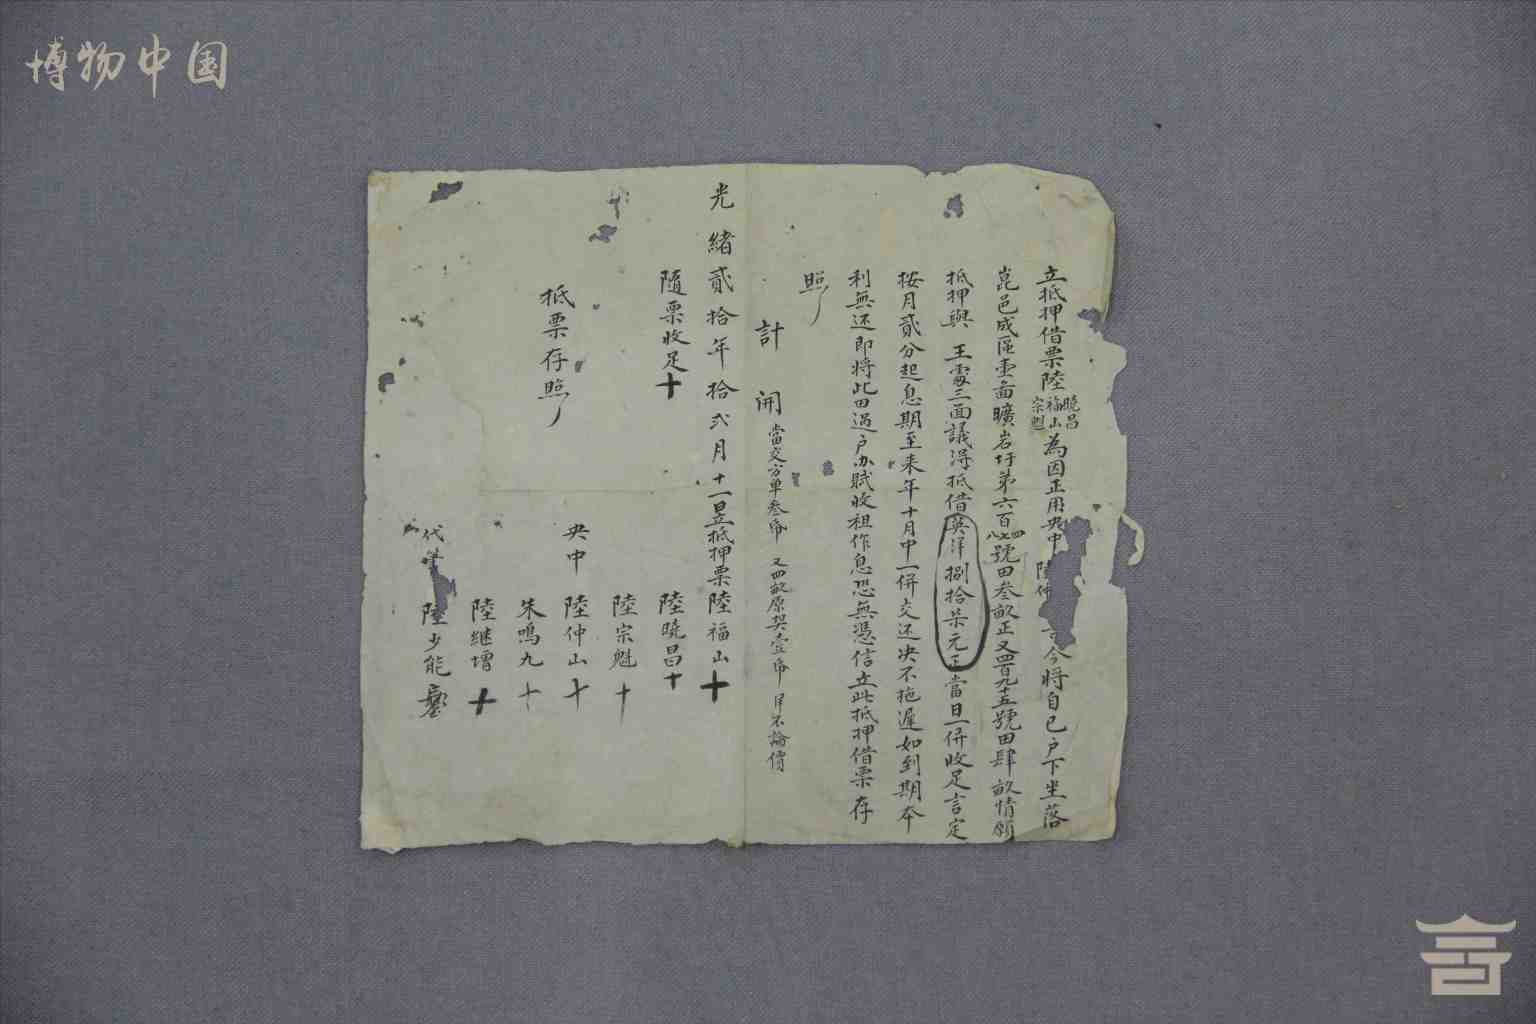 博物中国
立抵押借票陸曉昌福山宗魁為因正用央中陸仲今將自己户下坐落
崑邑咸區壹啚曠岩圩第六百八七四號田叁畝正又四百九十五號田肆畝情願
抵押與 王處三面議淂抵借英洋捌拾柒元正當日一併收足言定
按月貳分起息期至来年十月中一併交还决不拖遲如到期本
利無还即將此田過户办賦收租作息恐無憑信立此抵押借票存
照
計開 當交方单叁帋 又四畝原契壹帋 不論價
光緒貳拾年拾弍月十一日立抵押票陸福山十
隨票收足十 陸曉昌十
陸宗魁十
抵票存照 央中 陸仲山十
朱鳴九十
陸继增十
代筆 陸少能